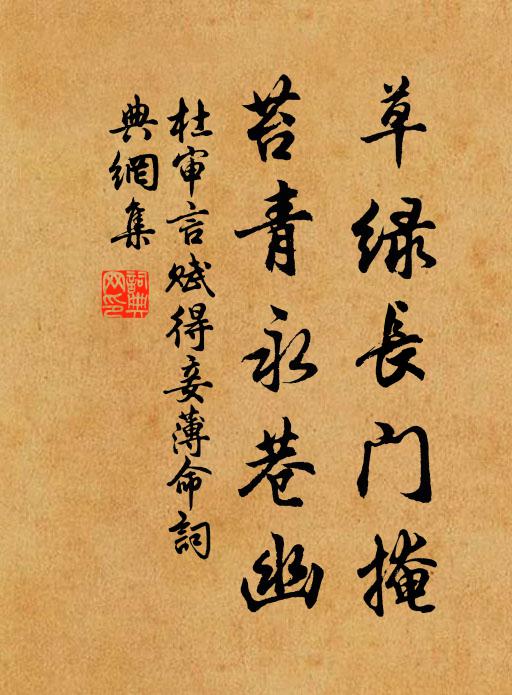 草绿長门掩
苔青永巷幽
杜审言赋得妾薄命詞
典網集
詞典
网印